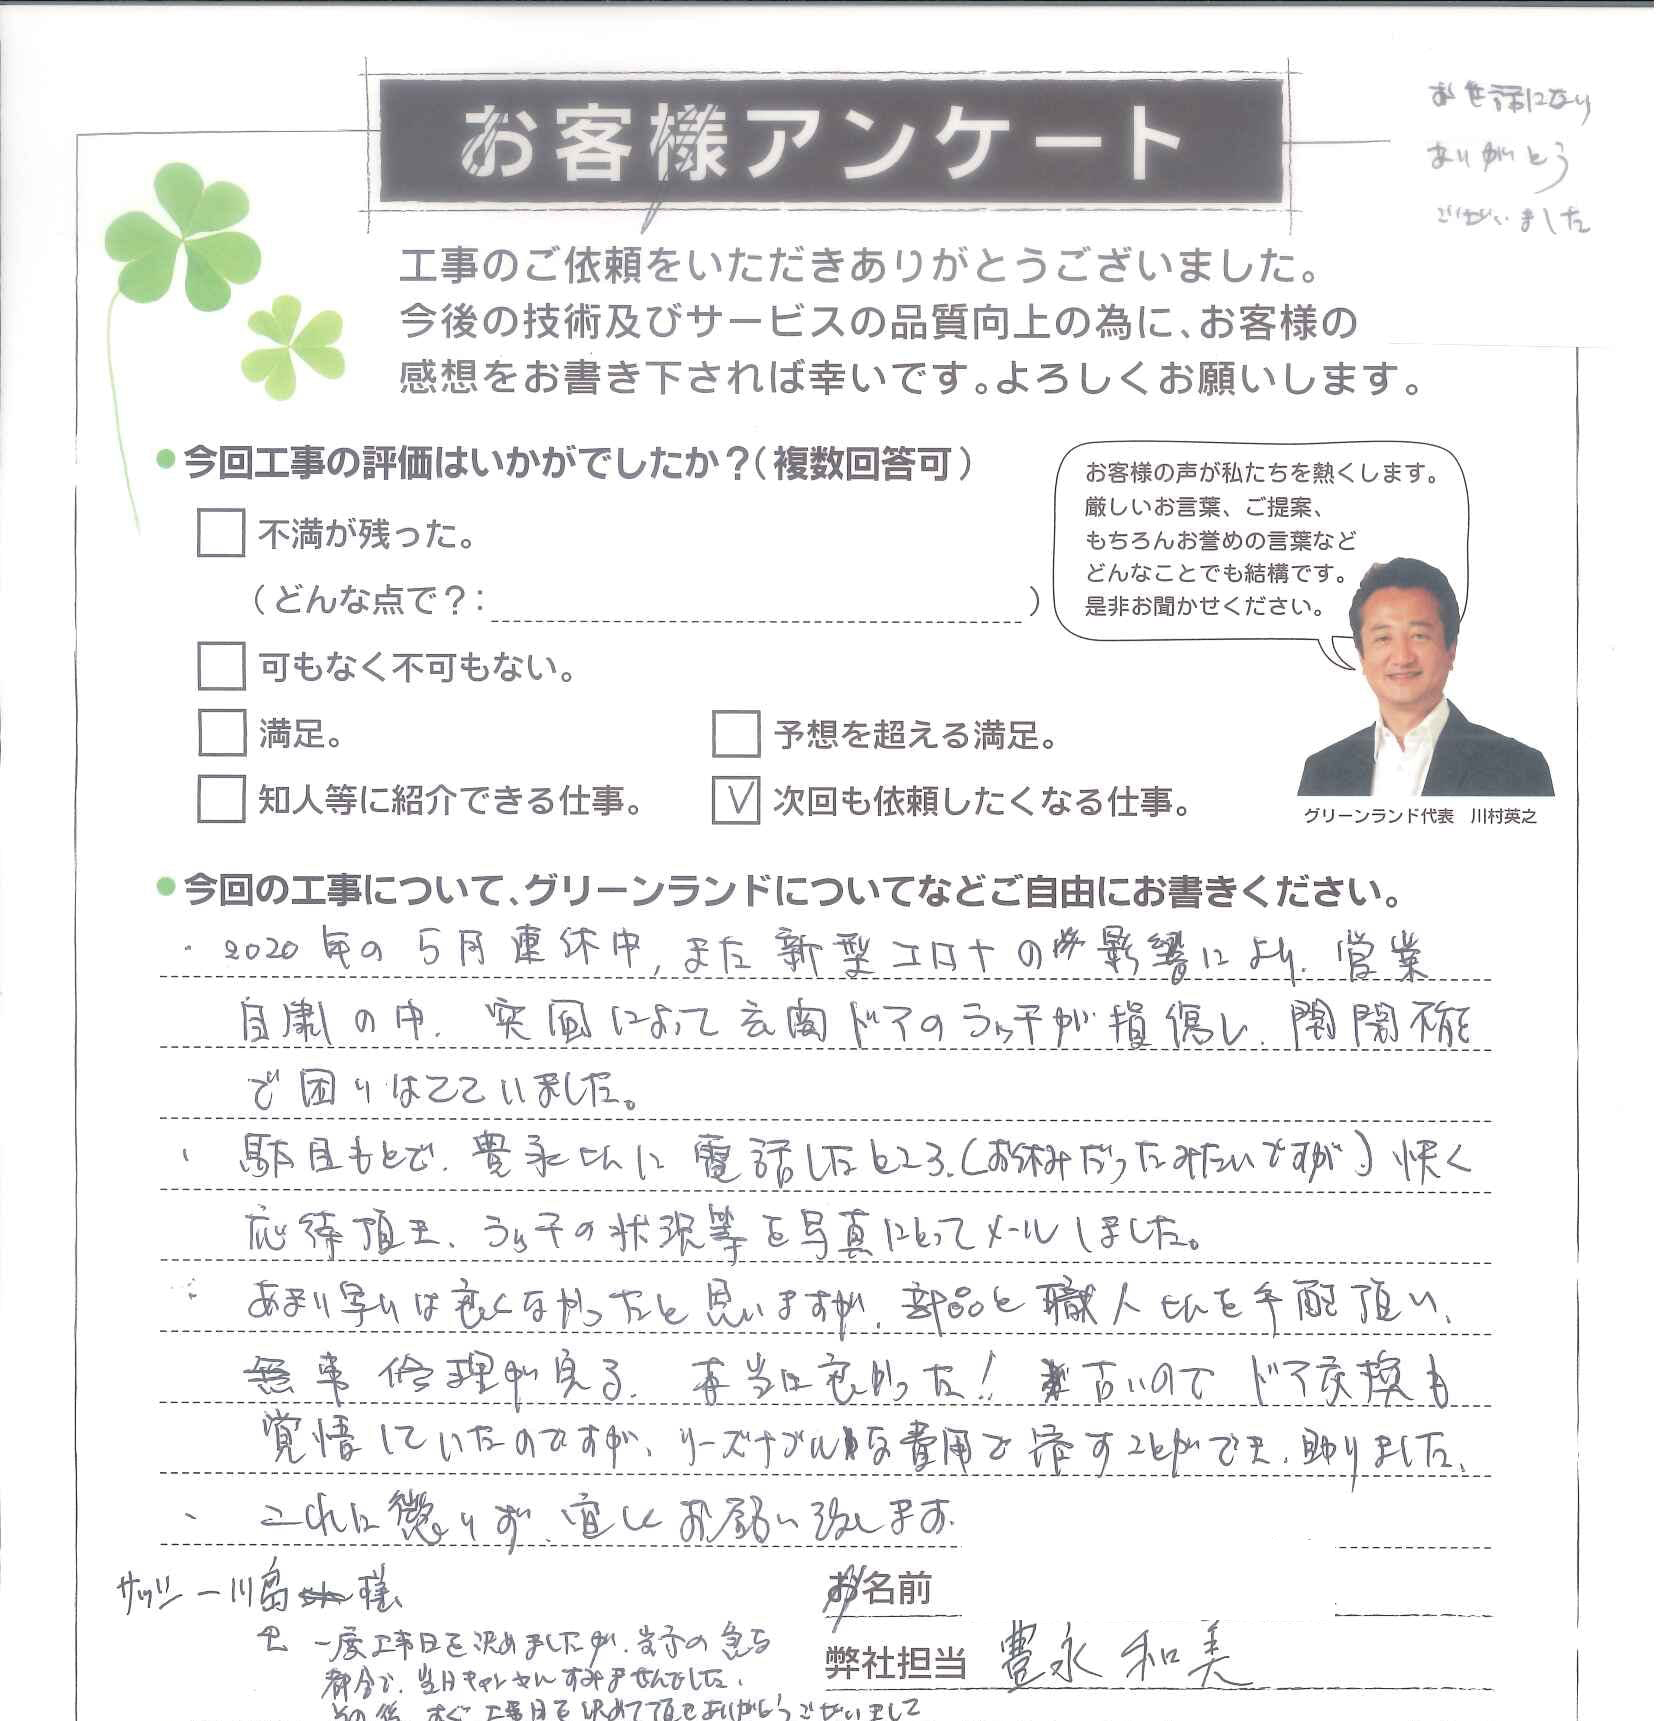 お客様アンケート
お世話になり
ありがとう
ございました
工事のご依頼をいただきありがとうございました。
今後の技術及びサービスの品質向上の為に、お客様の
感想をお書き下されば幸いです。よろしくお願いします。
今回工事の評価はいかがでしたか?(複数回答可)
不満が残った。
(どんな点で?: )
可もなく不可もない。
満足。
予想を超える満足。
知人等に紹介できる仕事。
次回も依頼したくなる仕事。
お客様の声が私たちを熱くします。
厳しいお言葉、ご提案、
もちろんお誉めの言葉など
どんなことでも結構です。
是非お聞かせください。
グリーンランド代表 川村英之
今回の工事について、グリーンランドについてなどご自由にお書きください。
・2020年の5月連休中,また新型コロナの影響により、営業
自粛の中、突風によって玄関ドアのラッチが損傷し、開閉不能
で困りはてていました。
・駄目もとで、豊永さんに電話したところ、(お休みだったみたいですが)快く
応待頂き、ラッチの状況等を写真にとってメールしました。
あまり早いは良くなかったと思いますが、部品と職人さんを手配頂い、
無事修理が見る、本当に良かった!古いのでドア交換も
覚悟していたのですが、リーズナブルな費用で済すことができ、助りました、
・これに懲りず、宜しくお願い致します。
サッシ 一川島様
お名前
一度工事日を決めましたが、女子の急な
都合で、当日キャンセルすみませんでした、
その後、すぐ工事日を決めて頂きありがとうございまして
弊社担当 豊永 和美